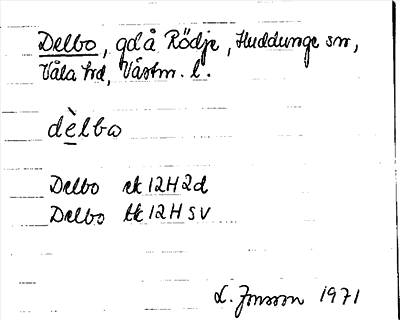 Delbo, gd å Rödje, Huddunge sn,
Våla hd, Västm. l.
dèlbo
Delbo ek 12H2d
Delbo tk 12H SV
L. Jonsson 1971